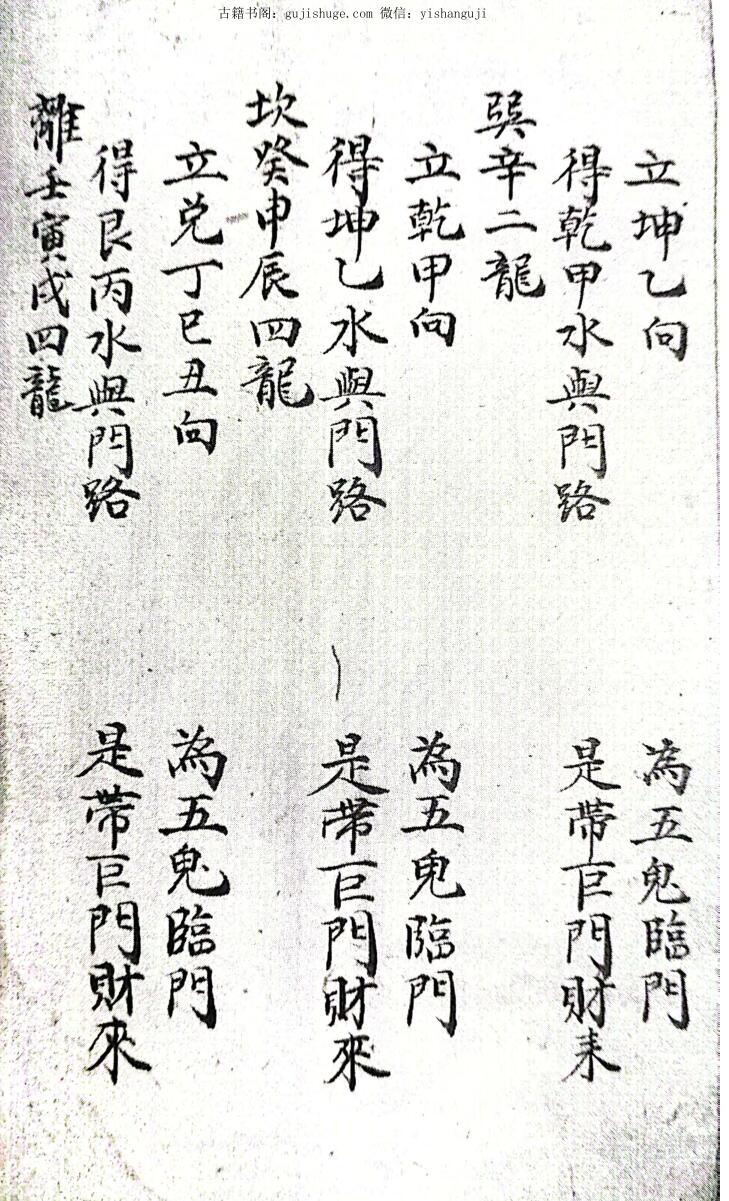 古籍书阁：gujishuge.com 微信：yishanguji
立坤乙向　為五鬼臨門
得乾甲水與門路　是帶巨門財来
巽辛二龍
立乾甲向　為五鬼臨門
得坤乙水與門路　是帶巨門財來
坎癸申辰四龍
立兑丁巳丑向　為五鬼臨門
得艮丙水與門路　是帶巨門財來
離壬寅戌四龍